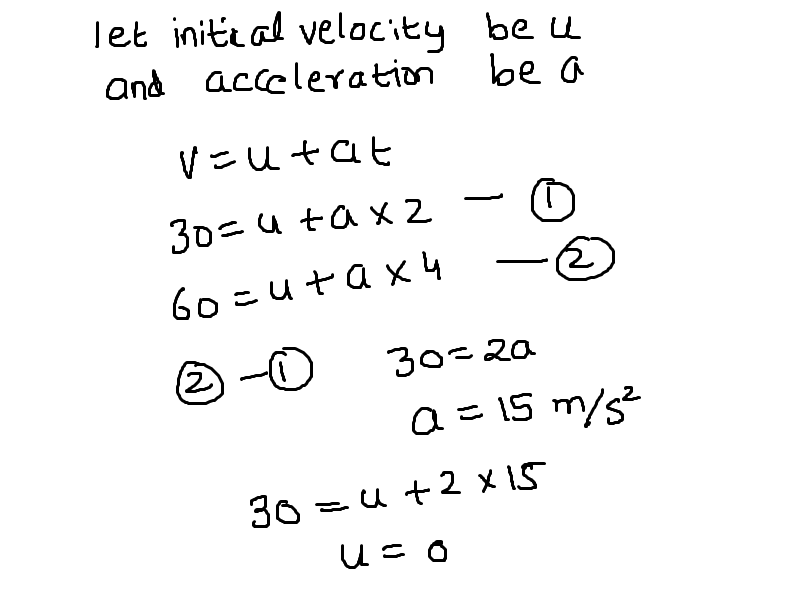 let initial velocity be u
and acceleration be a
v = u + at
30 = u + a × 2 — ①
60 = u + a × 4 — ②
② - ① 30 = 2a
a = 15 m/s²
30 = u + 2 × 15
u = 0